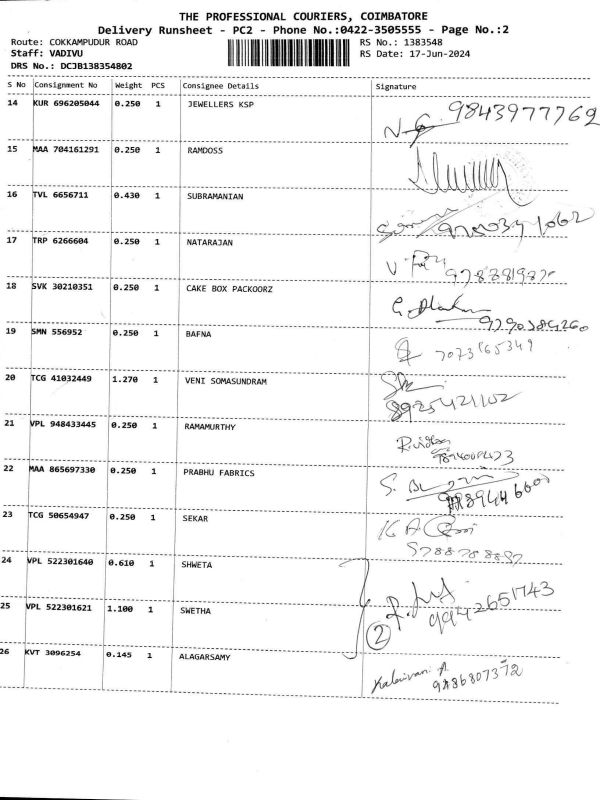 THE PROFESSIONAL COURIERS, COIMBATORE
Delivery Runsheet - PC2 - Phone No.:0422-3505555 - Page No.:2
Route: COKKAMPUDUR ROAD RS No.: 1383548
Staff: VADIVU RS Date: 17-Jun-2024
DRS No.: DCJB138354802
S No Consignment No Weight PCS Consignee Details Signature
14 KUR 696205044 0.250 1 JEWELLERS KSP 9843977762
15 MAA 704161291 0.250 1 RAMDOSS
16 TVL 6656711 0.430 1 SUBRAMANIAN
17 TRP 6266604 0.250 1 NATARAJAN
18 SVK 30210351 0.250 1 CAKE BOX PACKOORZ
19 SMN 556952 0.250 1 BAFNA
20 TCG 41032449 1.270 1 VENI SOMASUNDRAM 8925421102
21 VPL 948433445 0.250 1 RAMAMURTHY
22 MAA 865697330 0.250 1 PRABHU FABRICS
23 TCG 50654947 0.250 1 SEKAR
24 VPL 522301640 0.610 1 SHWETA
25 VPL 522301621 1.100 1 SWETHA 2 9942651743
26 KVT 3096254 0.145 1 ALAGARSAMY